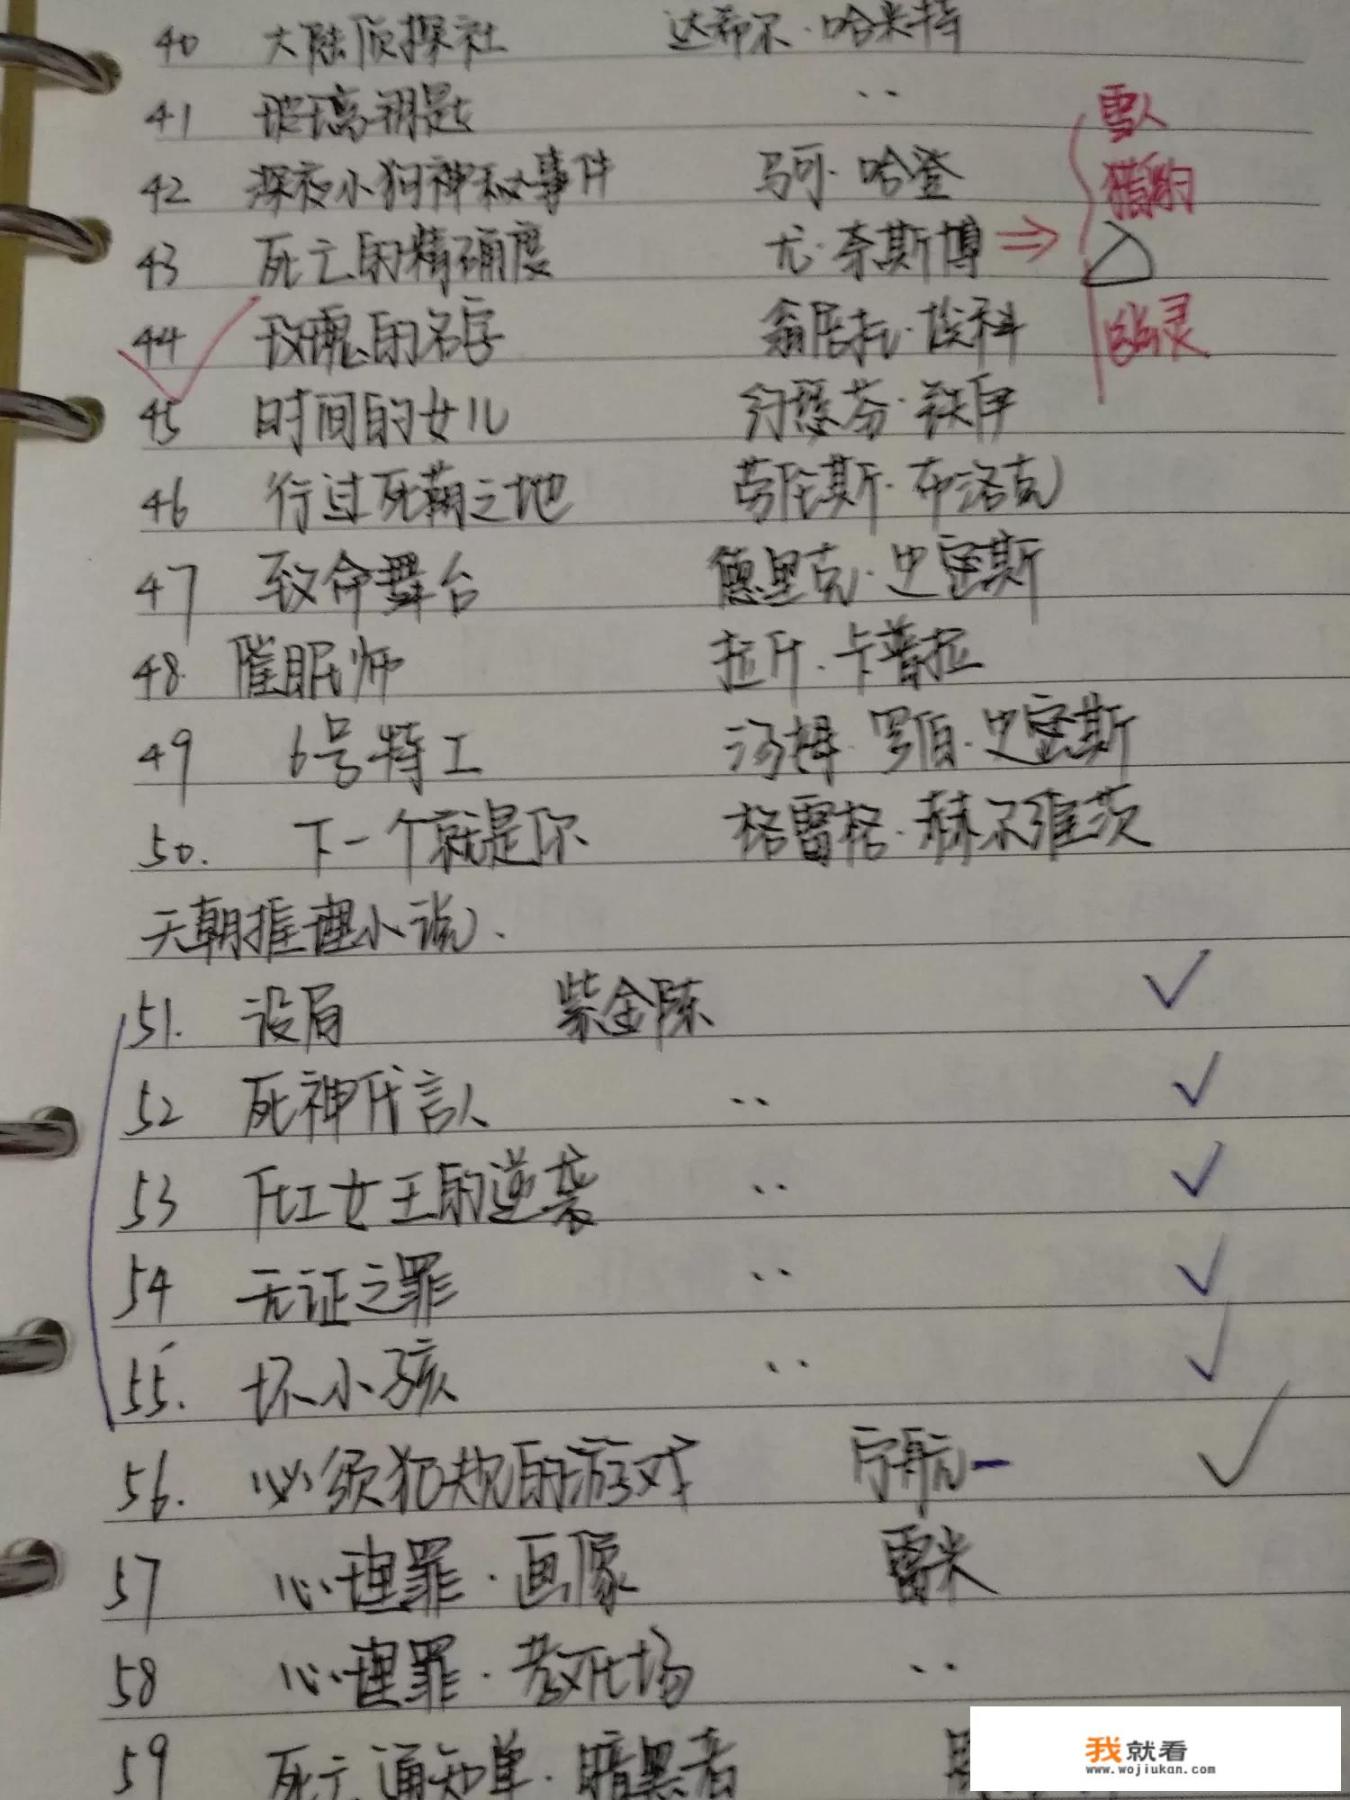 40 大陆侦探社 达希尔·哈米特
41 玻璃钥匙 ··
雪人
42 深夜小狗神秘事件 马可·哈登
猎豹
43 死亡的精确度 尤·奈斯博 ⇒
44 玫瑰的名字 翁贝托·埃科
幽灵
45 时间的女儿 约瑟芬·铁伊
46 行过死荫之地 劳伦斯·布洛克
47 致命舞台 德里克·史密斯
48. 催眠师 拉斤·卡普拉
49 6号特工 汤姆·罗伯·史密斯
50. 下一个就是你 格雷格·赫尔维茨
天朝推理小说.
51. 设局 紫金陈
52 死神代言人 ··
53 化工女王的逆袭 ··
54 无证之罪 ··
55. 坏小孩 ··
56. 必须犯规的游戏 宁航一
57 心理罪·画像 雷米
58 心理罪·教化场 ··
59 死亡通知单·暗黑者
我就看
www.wojiukan.com